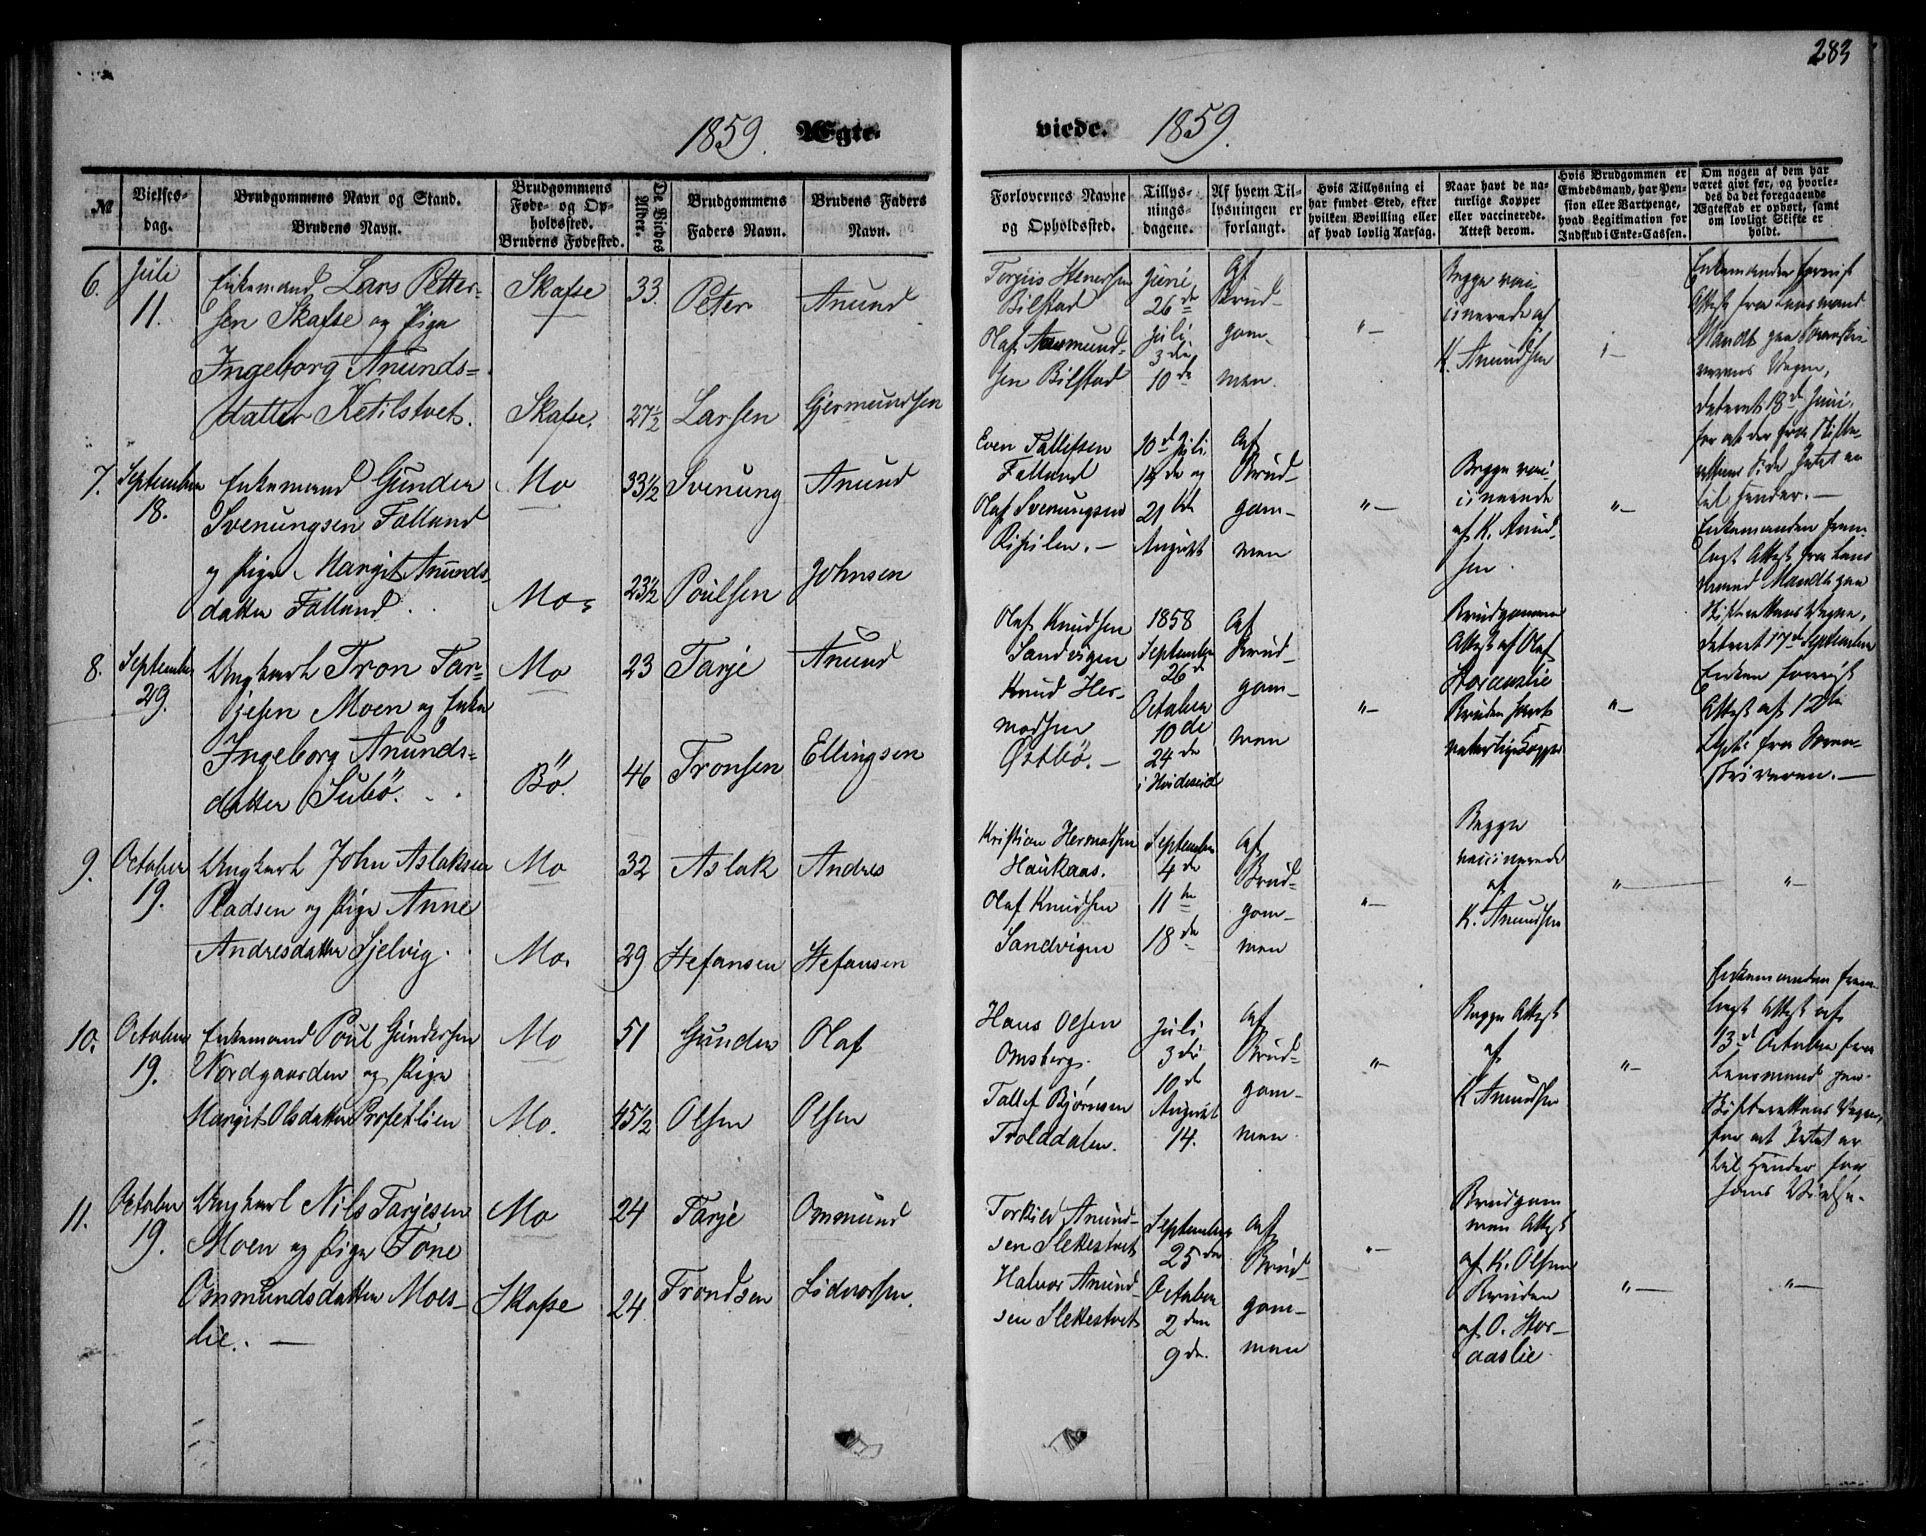 283
1859. Ægte-
viede. 1859.
№
Vielses-
dag.
Brudgommens Navn og Stand.
Brudens Navn.
Brudgommens
Føde- og Op-
holdssted.
Brudens Fødested.
De Viedes
Alder.
Brudgommens
Faders Navn.
Brudens Faders
Navn.
Forlovernes Navne
og Opholdssted.
Tillys-
nings-
dagene.
Af hvem Til-
lysningen er
forlangt.
Hvis Tillysning ei
har fundet Sted, efter
hvilken Bevilling eller
af hvad lovlig Aarsag.
Naar havt de na-
turlige Kopper
eller vaccinerede.
Attest derom.
Hvis Brudgommen er
Embedsmand, har Pen-
sion eller Vartpenge,
hvad Legitimation for
Indskud i Enke-Cassen.
Om nogen af dem har
været gift før, og hvorle-
des da det foregaaende
Ægteskab er ophørt, samt
om lovligt Skifte er
holdt.
6.
Juli
11.
Enkemand Lars Petter-
sen Skafse og Pige
Ingeborg Anunds-
datter Ketilstvet.
Skafse
Skafse.
33
27½
Peter
Larsen
Anund
Gjermundsen
Torjuis Stenersen
Bilstad
Olaf Aanmund-
sen Bilstad
Juni
26de
Juli
3die
10de
Af
Brud-
gom-
men.
"—
Begge vac-
cinerede af
K. Anundsen
Enkemanden forevist
Attest fra Lensmand
Mandt paa Sorenskri-
verens Vegne,
dateret 18d Juni,
for at der fra Skifte-
rettens Side Intet er
til Hinder.—
7.
September
18.
Enkemand Gunder
Svenungsen Falland
og Pige Margit Anunds-
datter Falland.
Mo
Mo.
33½
23½
Svenung
Poulsen
Anund
Johnsen
Even Tallefsen
Falland
Olaf Svenungsen
10d Juli
14de og
21de
August
Af
Brud-
gom-
men
"—
Begge vac-
cinerede
af K. Anund-
sen.
"—
Enkemanden frem-
lagt Attest fra Lens-
mand Mandt paa
Skifterettens Vegne,
dateret 17d September
8.
September
29.
Ungkarl Tron Tar-
jesen Moen og Enke
Ingeborg Anunds-
datter Subö.
Mo
Bö.
23
46
Tarje
Tronsen
Anund
Ellingsen
Olaf Knudsen
Sandvigen
Knud Her-
modsen
Östbö.—
1858
September
26de
October
10de
24de
i Hvideseid
Af
Brud-
gom-
men
"—
Brudgommen
Attest af Olaf
Storaaslie
Bruden havt
naturlige Kopper
"—
Enken forevist
Attest af 12te
fra Soren-
skriveren.—
9.
October
19.
Ungkarl John Aslaksen
Pladsen og Pige Anne
Andresdatter Sjelvig.
Mo
Mo.
32
29
Aslak
Stefansen
Andres
Stefansen
Kristian Hermodsen
Haukaas.
Olaf Knudsen
Sandvigen
September
4de
11te
18de
Af
Brud-
gom-
men
"—
Begge
vaccinerede
af
K. Anundsen
"—
"—
10.
October
19.
Enkemand Poul Gundersen
Nordgaarden og Pige
Margit Olsdatter Rosfetlien
Mo
Mo.
51
45½
Gunder
Olsen
Olaf
Olsen
Hans Olsen
Omsberg.
Tallef Bjørnsen
Trolddalen.
Juli
3die
10de
August
14.
Af
Brud-
gom-
men.
"—
Begge Attest
af
K Anundsen
"—
Enkemanden frem-
lagt Attest af
13d October fra
Lensmand paa
Skifterettens Vegne,
for at Intet er
til Hinder for
hans Vielse.
11.
October
19.
Ungkarl Nils Tarjesen
Moen og Pige Töne
Ommundsdatter Moes-
lie. —
Mo
Skafse
24
24
Tarje
Trondsen
Ommund
Lidvorsen.
Torkild Anund-
sen Slekestvet
Halvor Anund-
sen Slekestvet
September
25de
October
2den
9de.
Af
Brud-
gom-
men
"—
Brudgom-
men Attest
af K. Olsen
Bruden
af O. Stor-
aaslie.
"—
"—